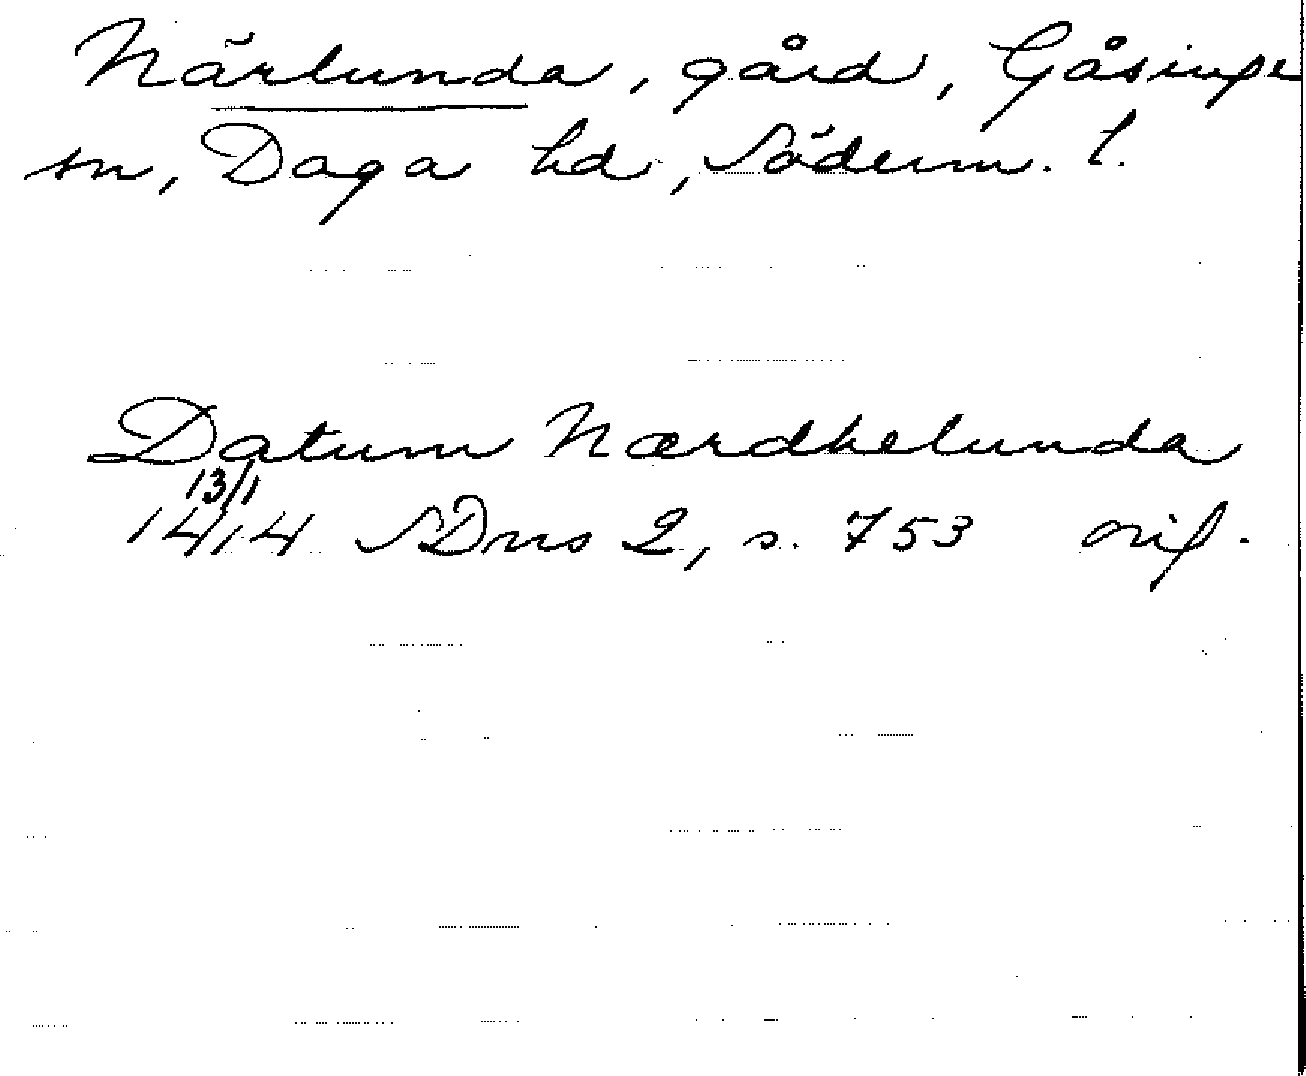 Närlunda, gård, Gåsinge
sn, Daga hd, Söderm. l.
Datum Nærdhelunda
13/1
1414 SDns 2, s. 753 orig.